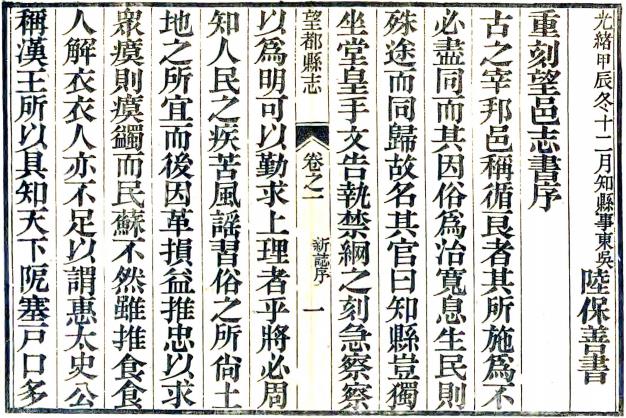 光緒甲辰冬十二月知縣事東吳陸保善書
重刻望邑志書序
古之宰邦邑稱循良者其所施爲不
必盡同而其因俗爲治寬息生民則
殊途而同歸故名其官曰知縣豈獨
坐堂皇手文告執禁綱之刻急察察
望都縣志 卷之一 新誌序 一
以爲明可以勤求上理者乎將必周
知人民之疾苦風謠習俗之所尙土
地之所宜而後因革損益推忠以求
衆瘼則瘼蠲而民蘇不然雖推食食
人解衣衣人亦不足以謂惠太史公
稱漢王所以具知天下阨塞戸口多